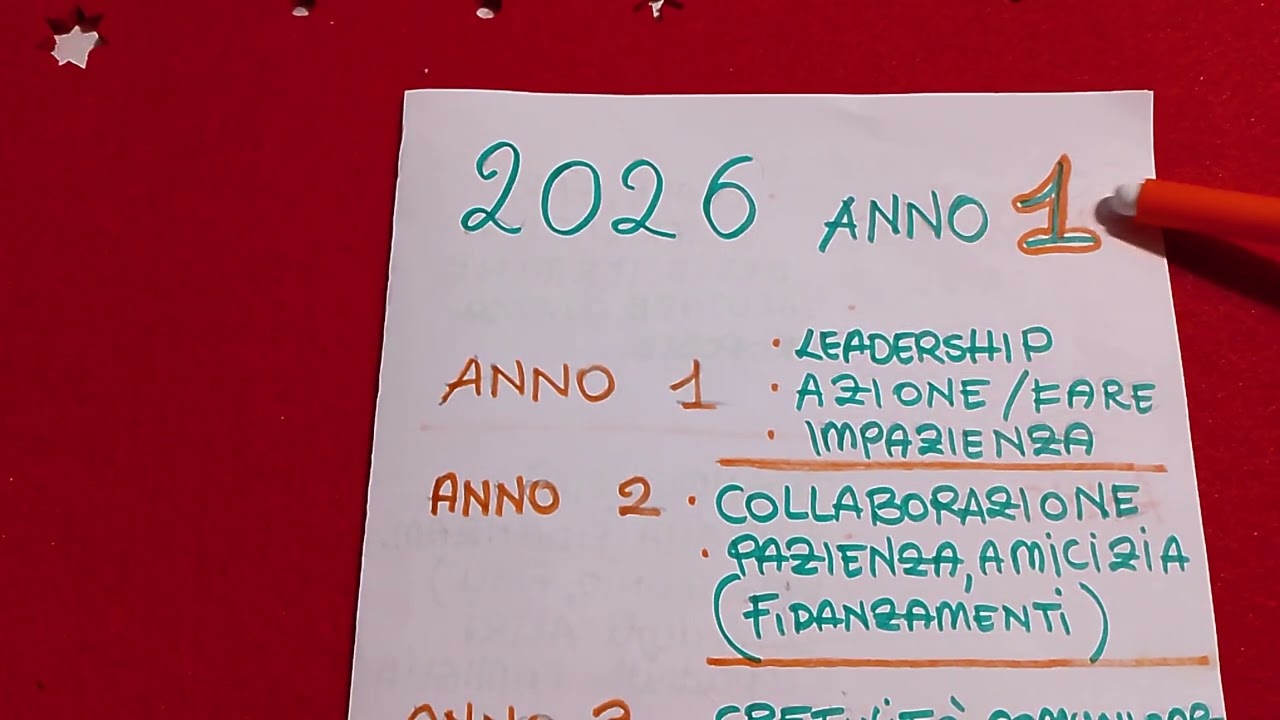 2026 ANNO 1
ANNO 1 • LEADERSHIP
• AZIONE/FARE
• IMPAZIENZA
ANNO 2 • COLLABORAZIONE
• PAZIENZA, AMICIZIA
(FIDANZAMENTI)
ANNO 3